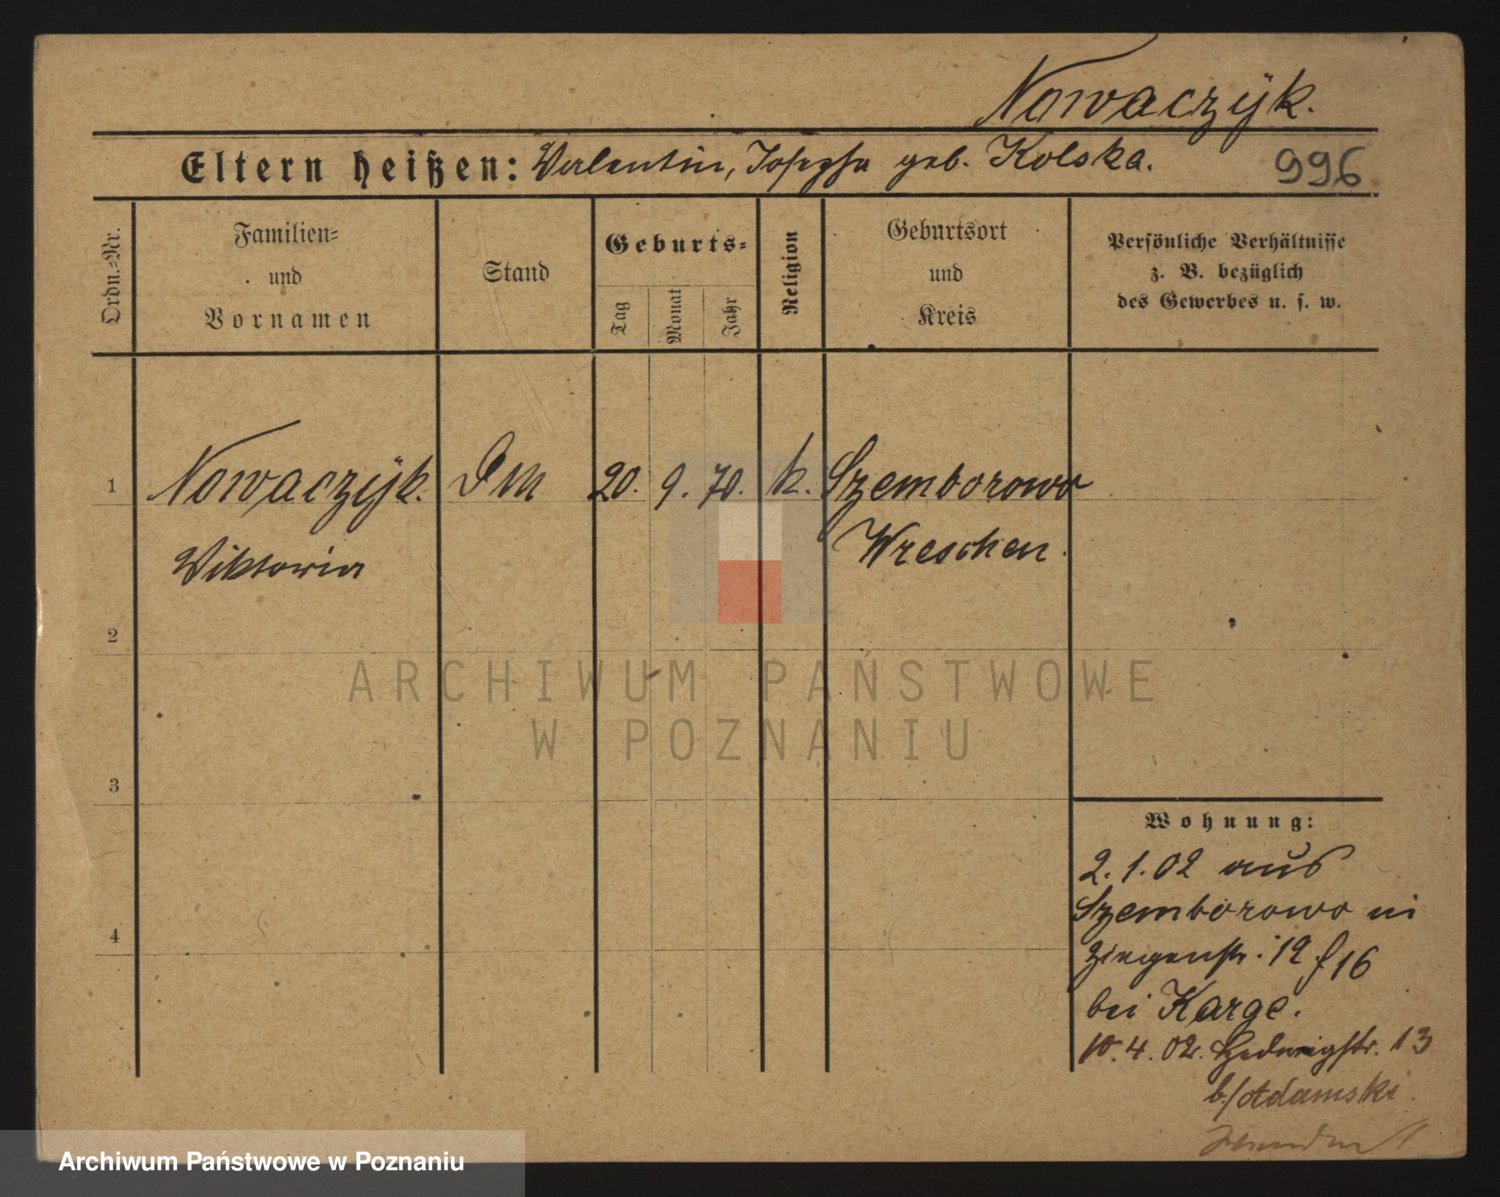 Nowaczÿk.
Eltern heißen: Valentin, Josepha geb. Kolska.
996
Ordn.-Nr.
Familien-
und
Vornamen
Stand
Geburts-
Tag
Monat
Jahr
Religion
Geburtsort
und
Kreis
Persönliche Verhältnisse
z. B. bezüglich
des Gewerbes u. s. w.
1 Nowaczÿk. Dm 20. 9. 70. k. Szemborowo
Viktoria Wreschen.
2
3
4
Wohnung:
2. 1. 02 aus
Szemborowo in
Ziegenstr. 19 f 16
bei Karge.
10. 4. 02. Hedwigstr. 13
b/Adamski.
ARCHIWUM PAŃSTWOWE
W POZNANIU
Archiwum Państwowe w Poznaniu